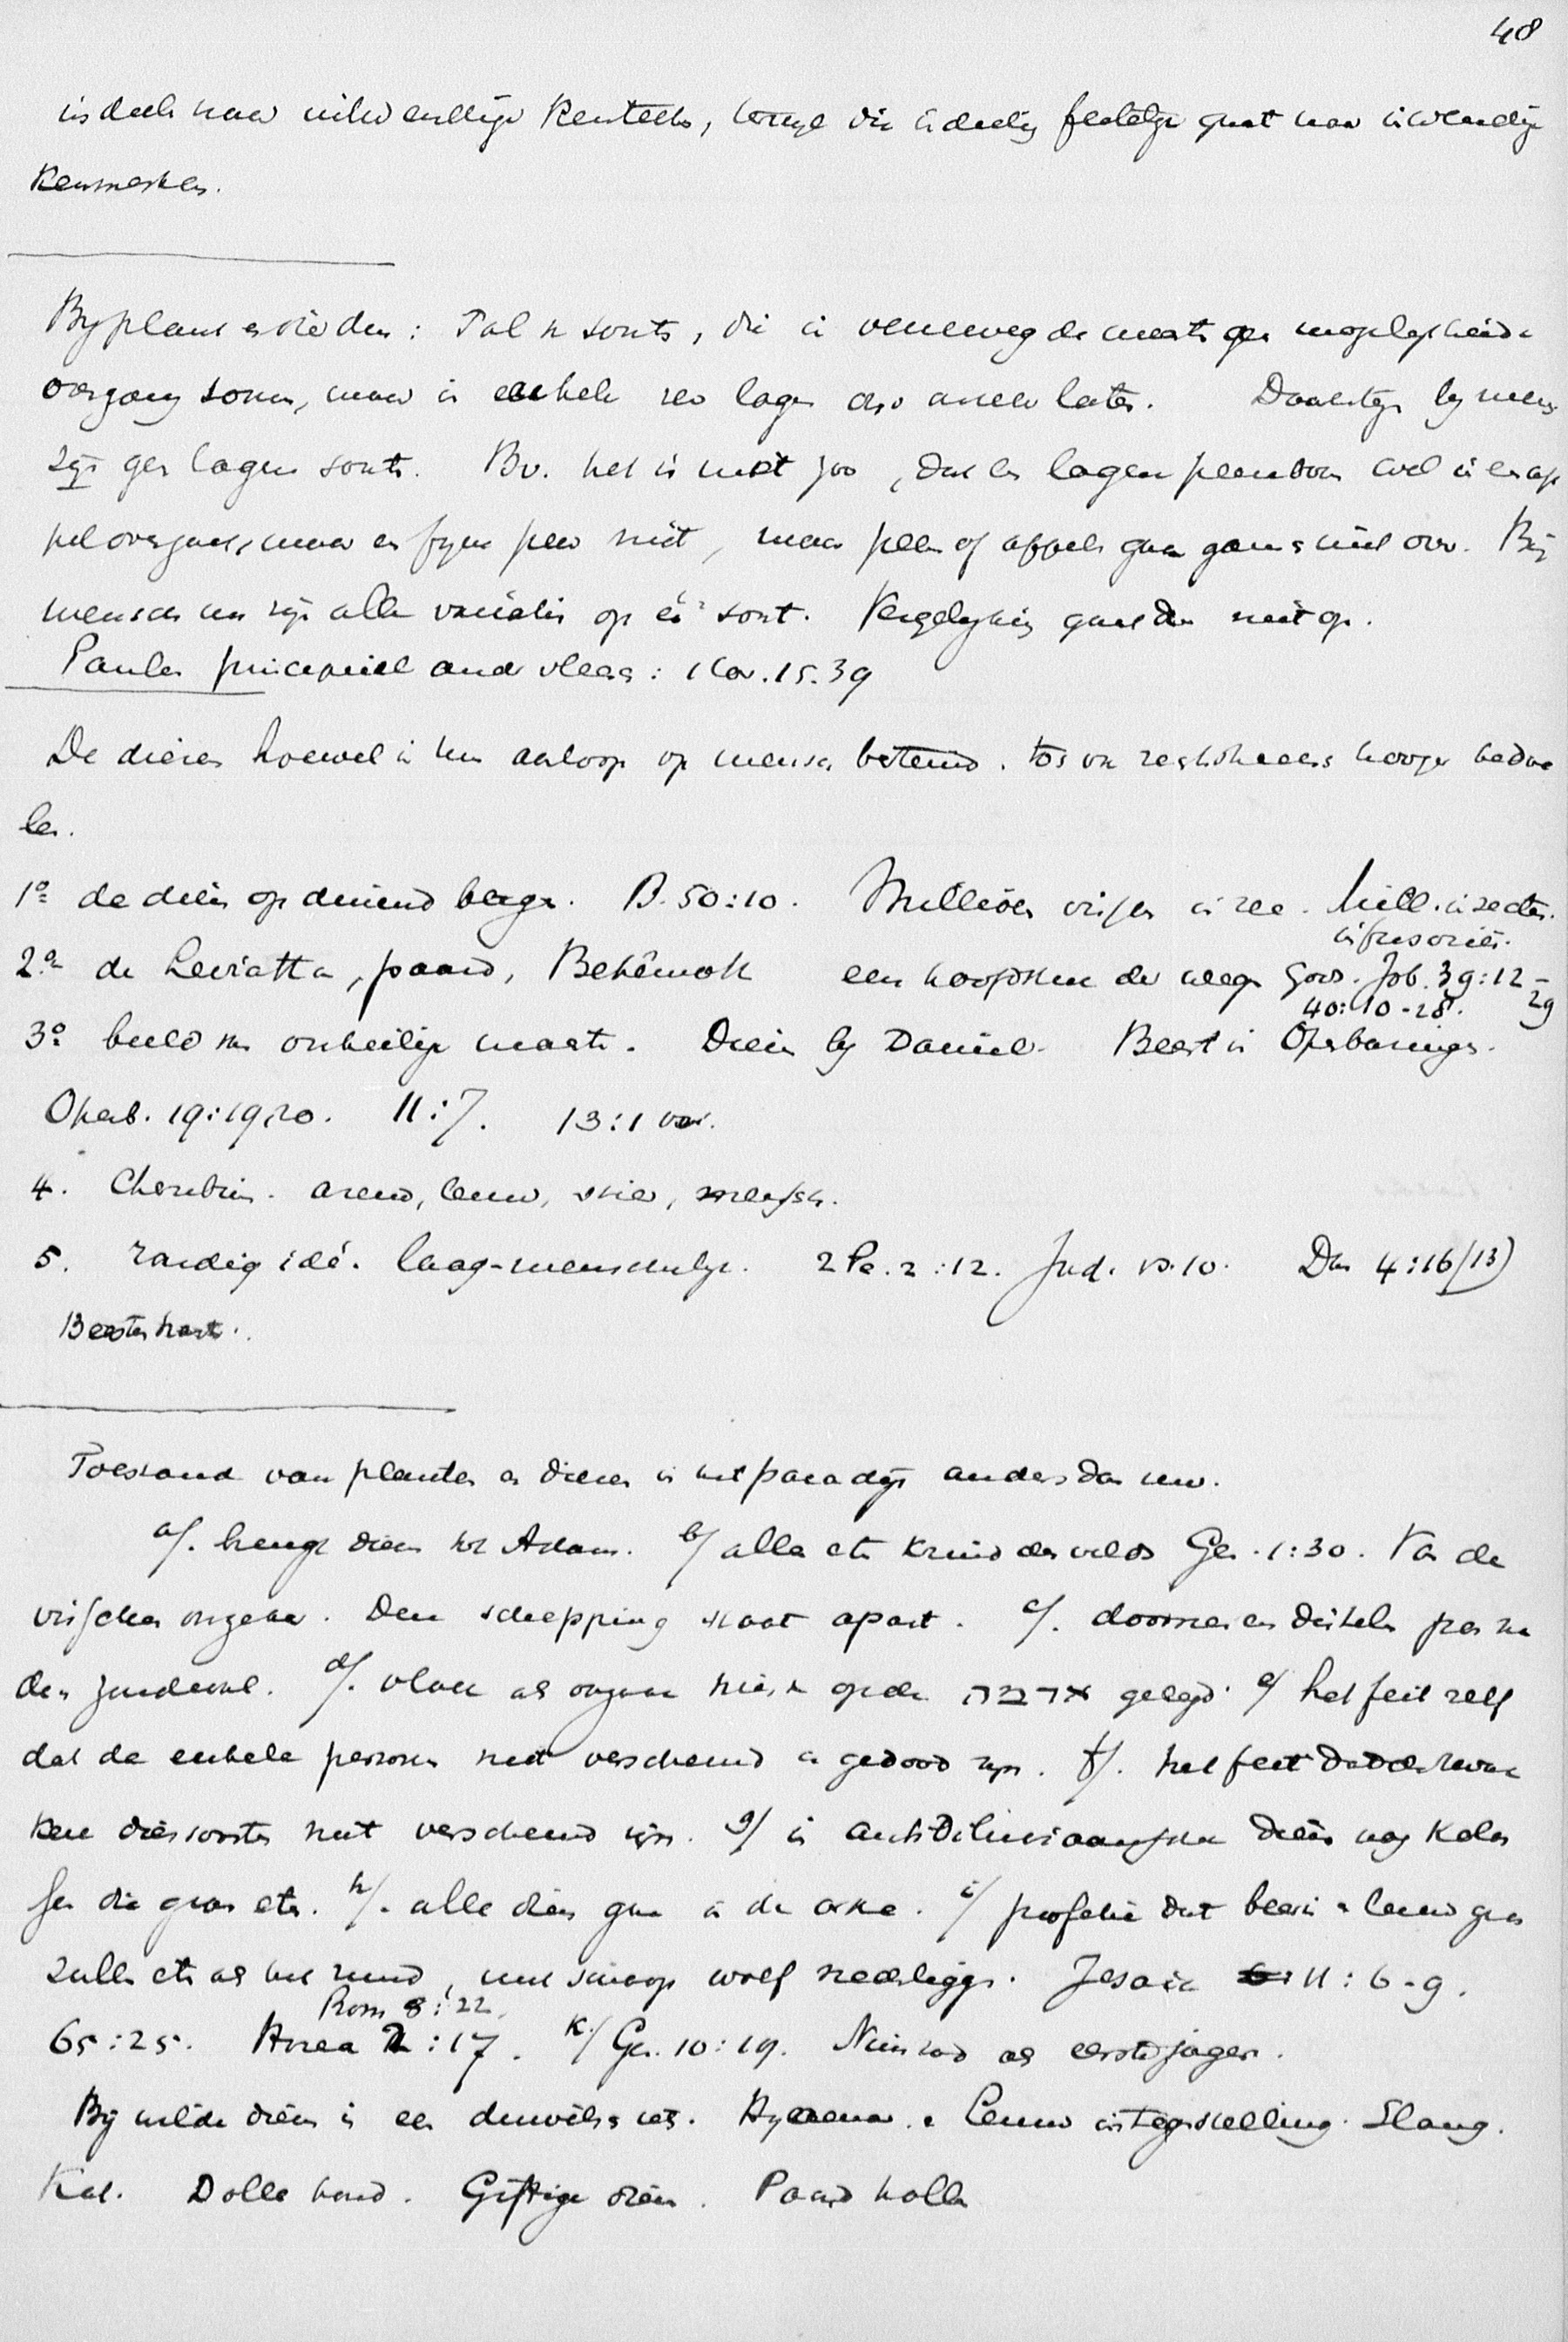 48
is deels naar uitwendige Kenteeken, terwyl die indeeling feitelyk gaat naar inwendige
Kenmerken.
By plant en dier dus: Tal v. soorten, die in
overgang toonen, maar in enkele zeer lager dan andere laten. Daarentegen by mens
zijn geen lagere soorten. Bv. het is niet zoo, dat
maar een fyne peer niet, maar peer of appels gaan gansch niet over. Bij
menschen zijn alle variatie op één soort. Vergelyking gaat dus niet op.
Paulus principieel ander vleesch: 1 Cor. 15.39
De dieren hoewel in hun aanloop op mensch betemd. toch ook rechtstreeks hooger bedoe
len.
1º de dieren op duizend bergen. Ps. 50:10. Millioen visschen in zee. Mill. insecten.
infusoriën.
2º de Leviathan, paard, Behêmoth een hoofdstuk der wegen Gods. Job. 39:12-
29
40:10-28.
3º beeld van onheilige macht. Dieren by Daniel. Beest in Openbaringen.
Openb. 19:19,20. 11:7. 13:1 vv.
4. Cherubim. arend, leeuw, stier, mensch.
5. zondig idé. laag-menschelyk. 2 Pe. 2:12. Jud. vs. 10. Dan 4:16 (13)
Beesten hart.
Toestand van planten en dieren in het paradijs anders dan nu.
a/. brengt dieren tot Adam. b/ alle eten kruid des velds Gen. 1:30. Van de
visschen ongezien. Den schepping staat apart. c/. doornen en distelen pas na
den zondeval. d/. vloek als orgaan hier op de אדמה gelegd. e/ het feit zelf
dat de enkele personen niet verscheurd en gedood zyn. f/. het feit dat de zwak
kere diersoorten niet verscheurd zijn. g/ in antidiluviaansche dieren nog Kolos
sen die gras eten. h/. alle dieren gaan in de arke. i/ profetie dat beerin en leeuw gras
zullen eten als het rund, met schaap wolf nederliggen. Jesaia 11:6-9.
Rom 8:22.
65:25. Hosea 2:17. k./ Gen. 10:19. Nimrod als eerste jager.
Bij wilde dieren is een duivelsch iets. Hyaena. en Leeuw in tegenstelling. Slang.
Kat. Dolle hond. Giftige dieren. Paard hollen